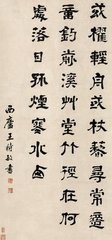 或櫂輕舟或杖藜尋常適
意釣前溪草堂竹徑在何
處落日孤煙寒水西
西廬王時敏書